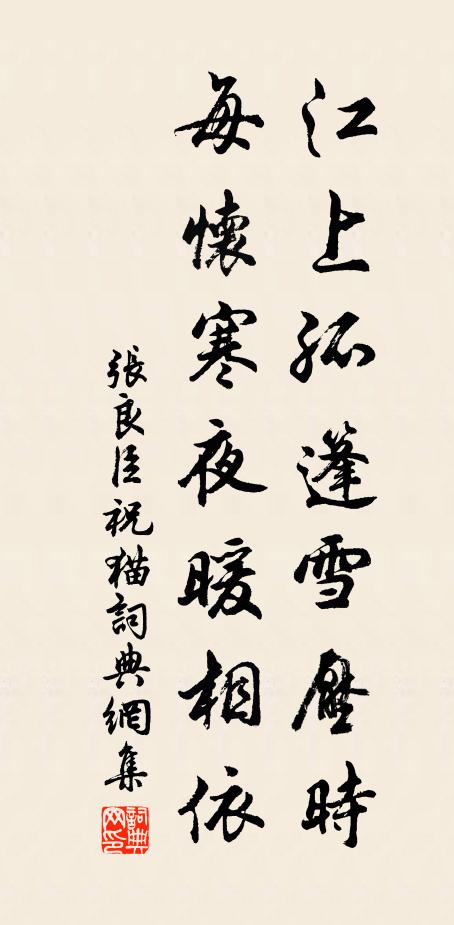 江上孤篷雪壓時
每懷寒夜暖相依
張良臣祝猫詞典網集
詞典網印